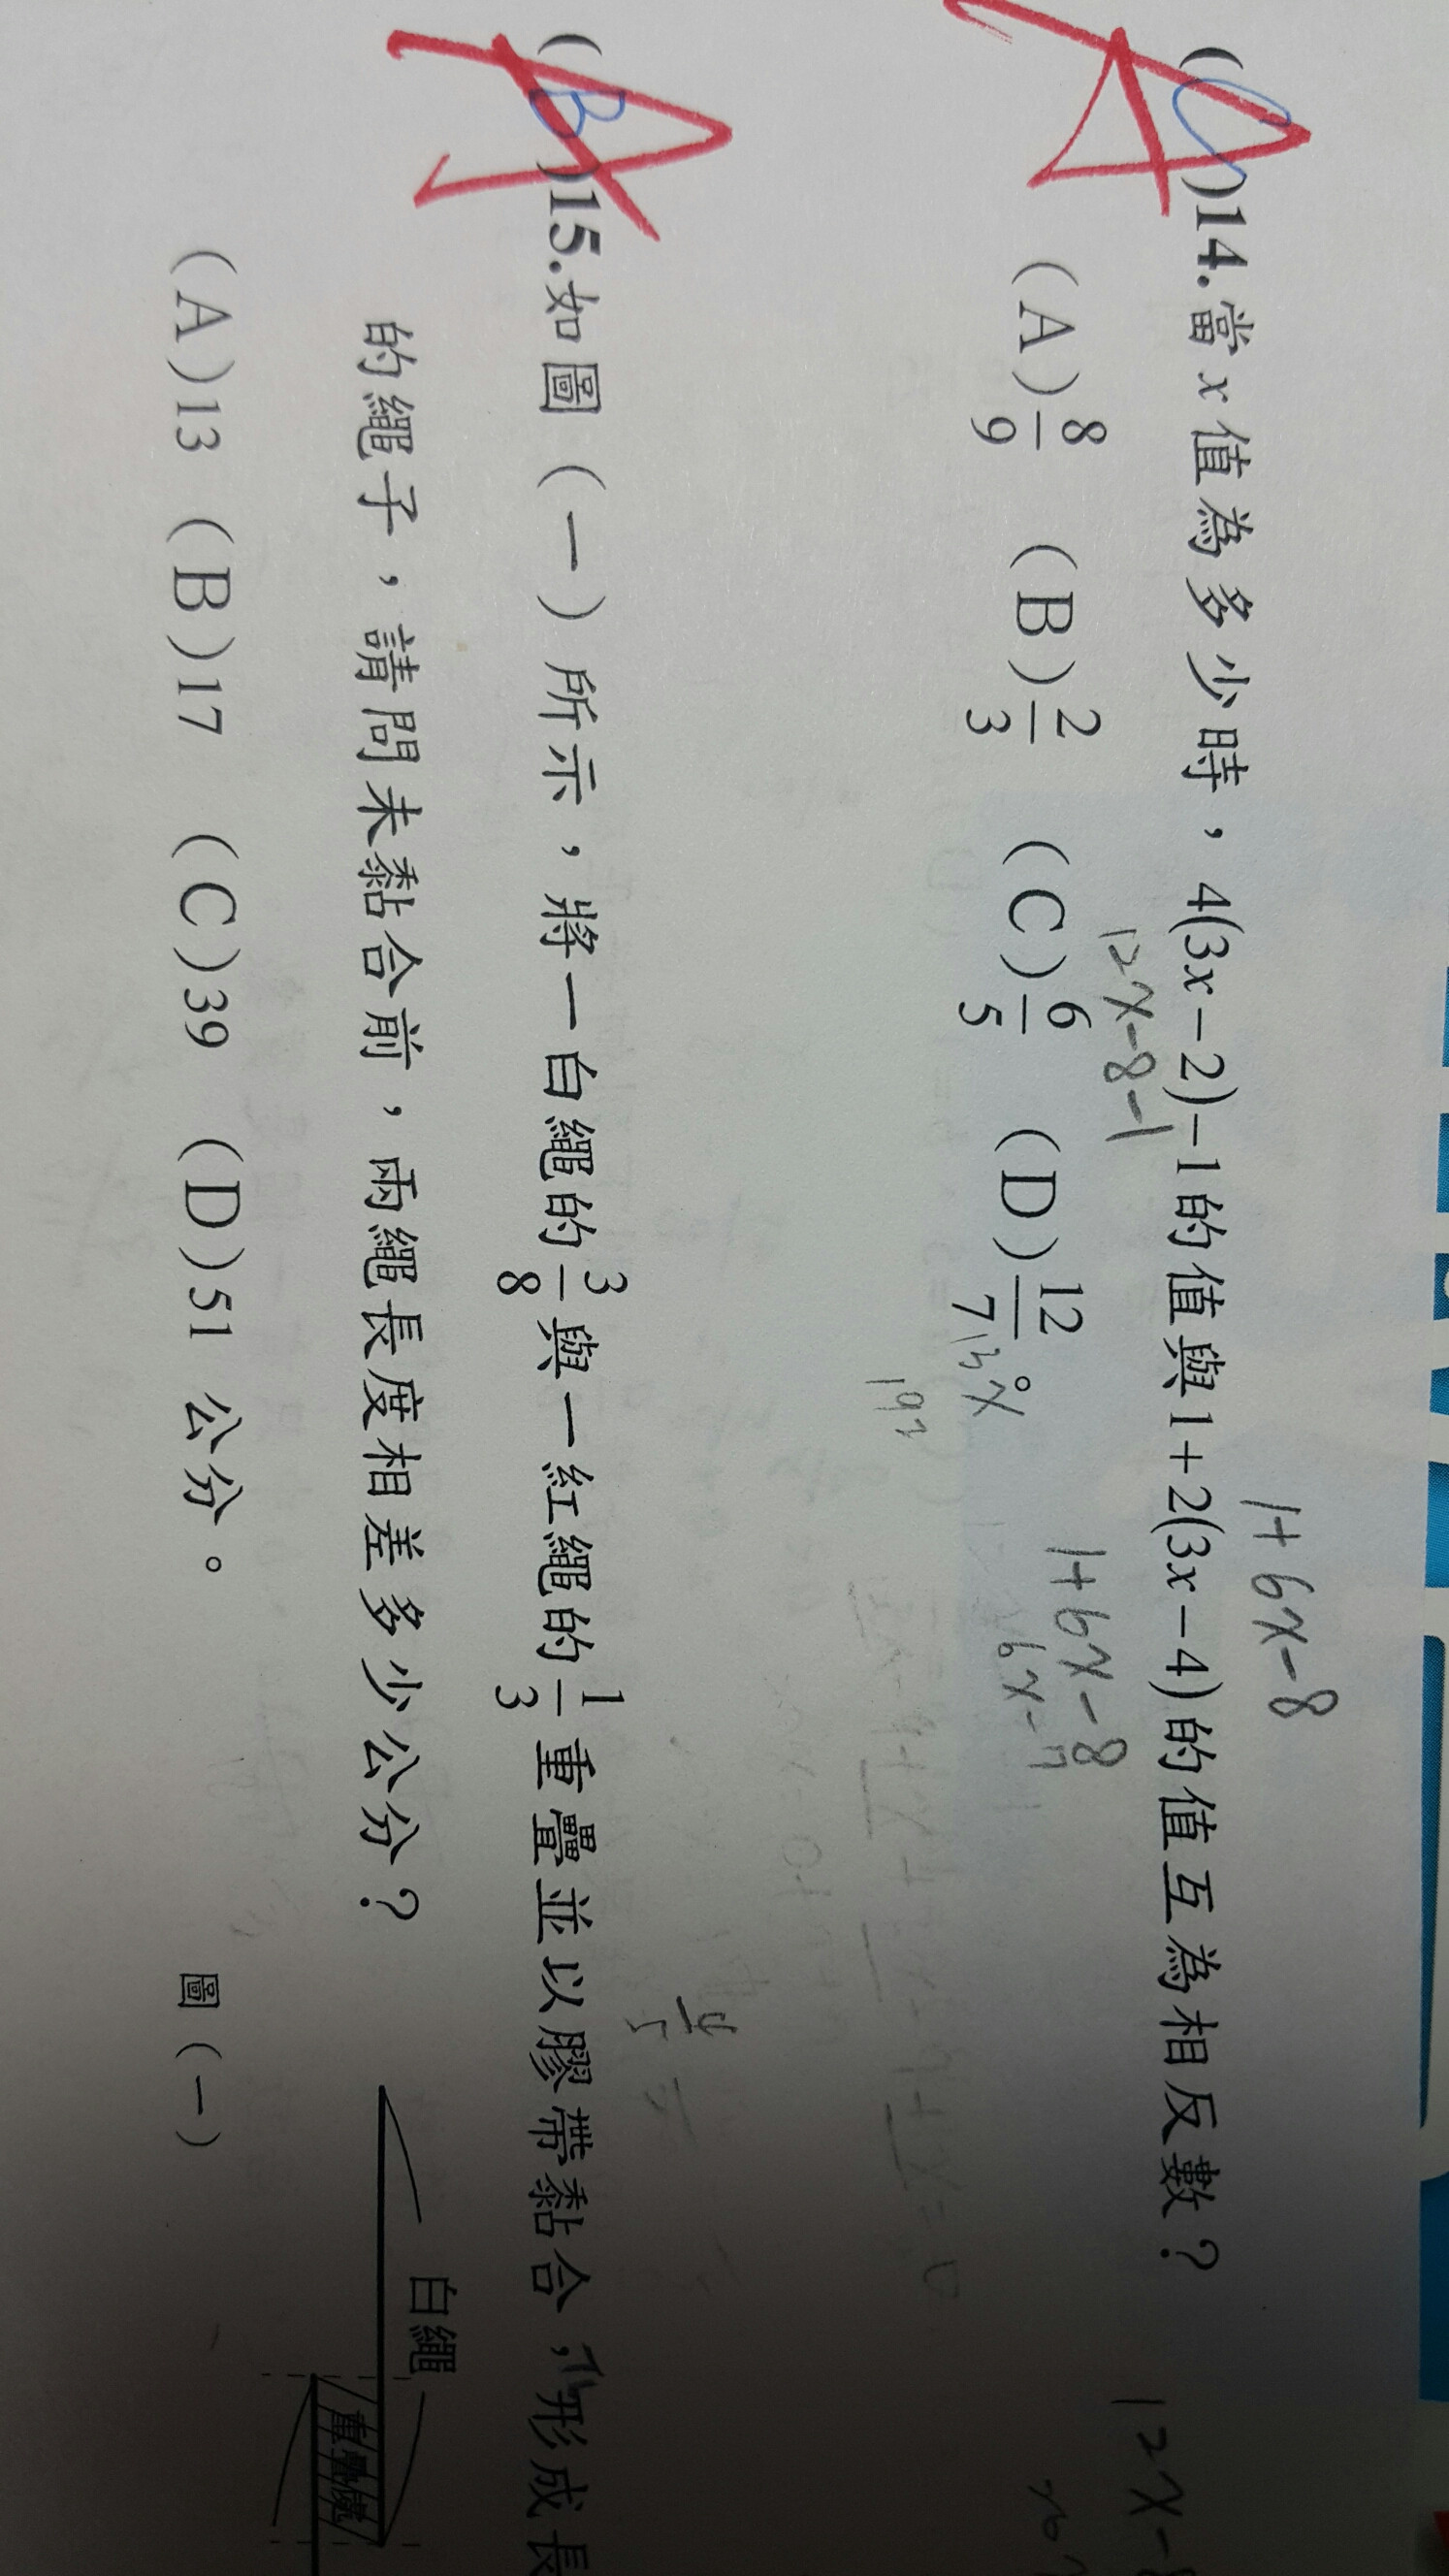 1+6x-8
(C)14.當x值為多少時，4(3x-2)-1的值與1+2(3x-4)的值互為相反數？
12x-8-1
1+6x-8
12x-
6x-7
(A)8/9 (B)2/3 (C)6/5 (D)12/7
192
(B)15.如圖（一）所示，將一白繩的3/8與一紅繩的1/3重疊並以膠帶黏合，形成長
的繩子，請問未黏合前，兩繩長度相差多少公分？
白繩
重疊處
(A)13 (B)17 (C)39 (D)51 公分。
圖（一）